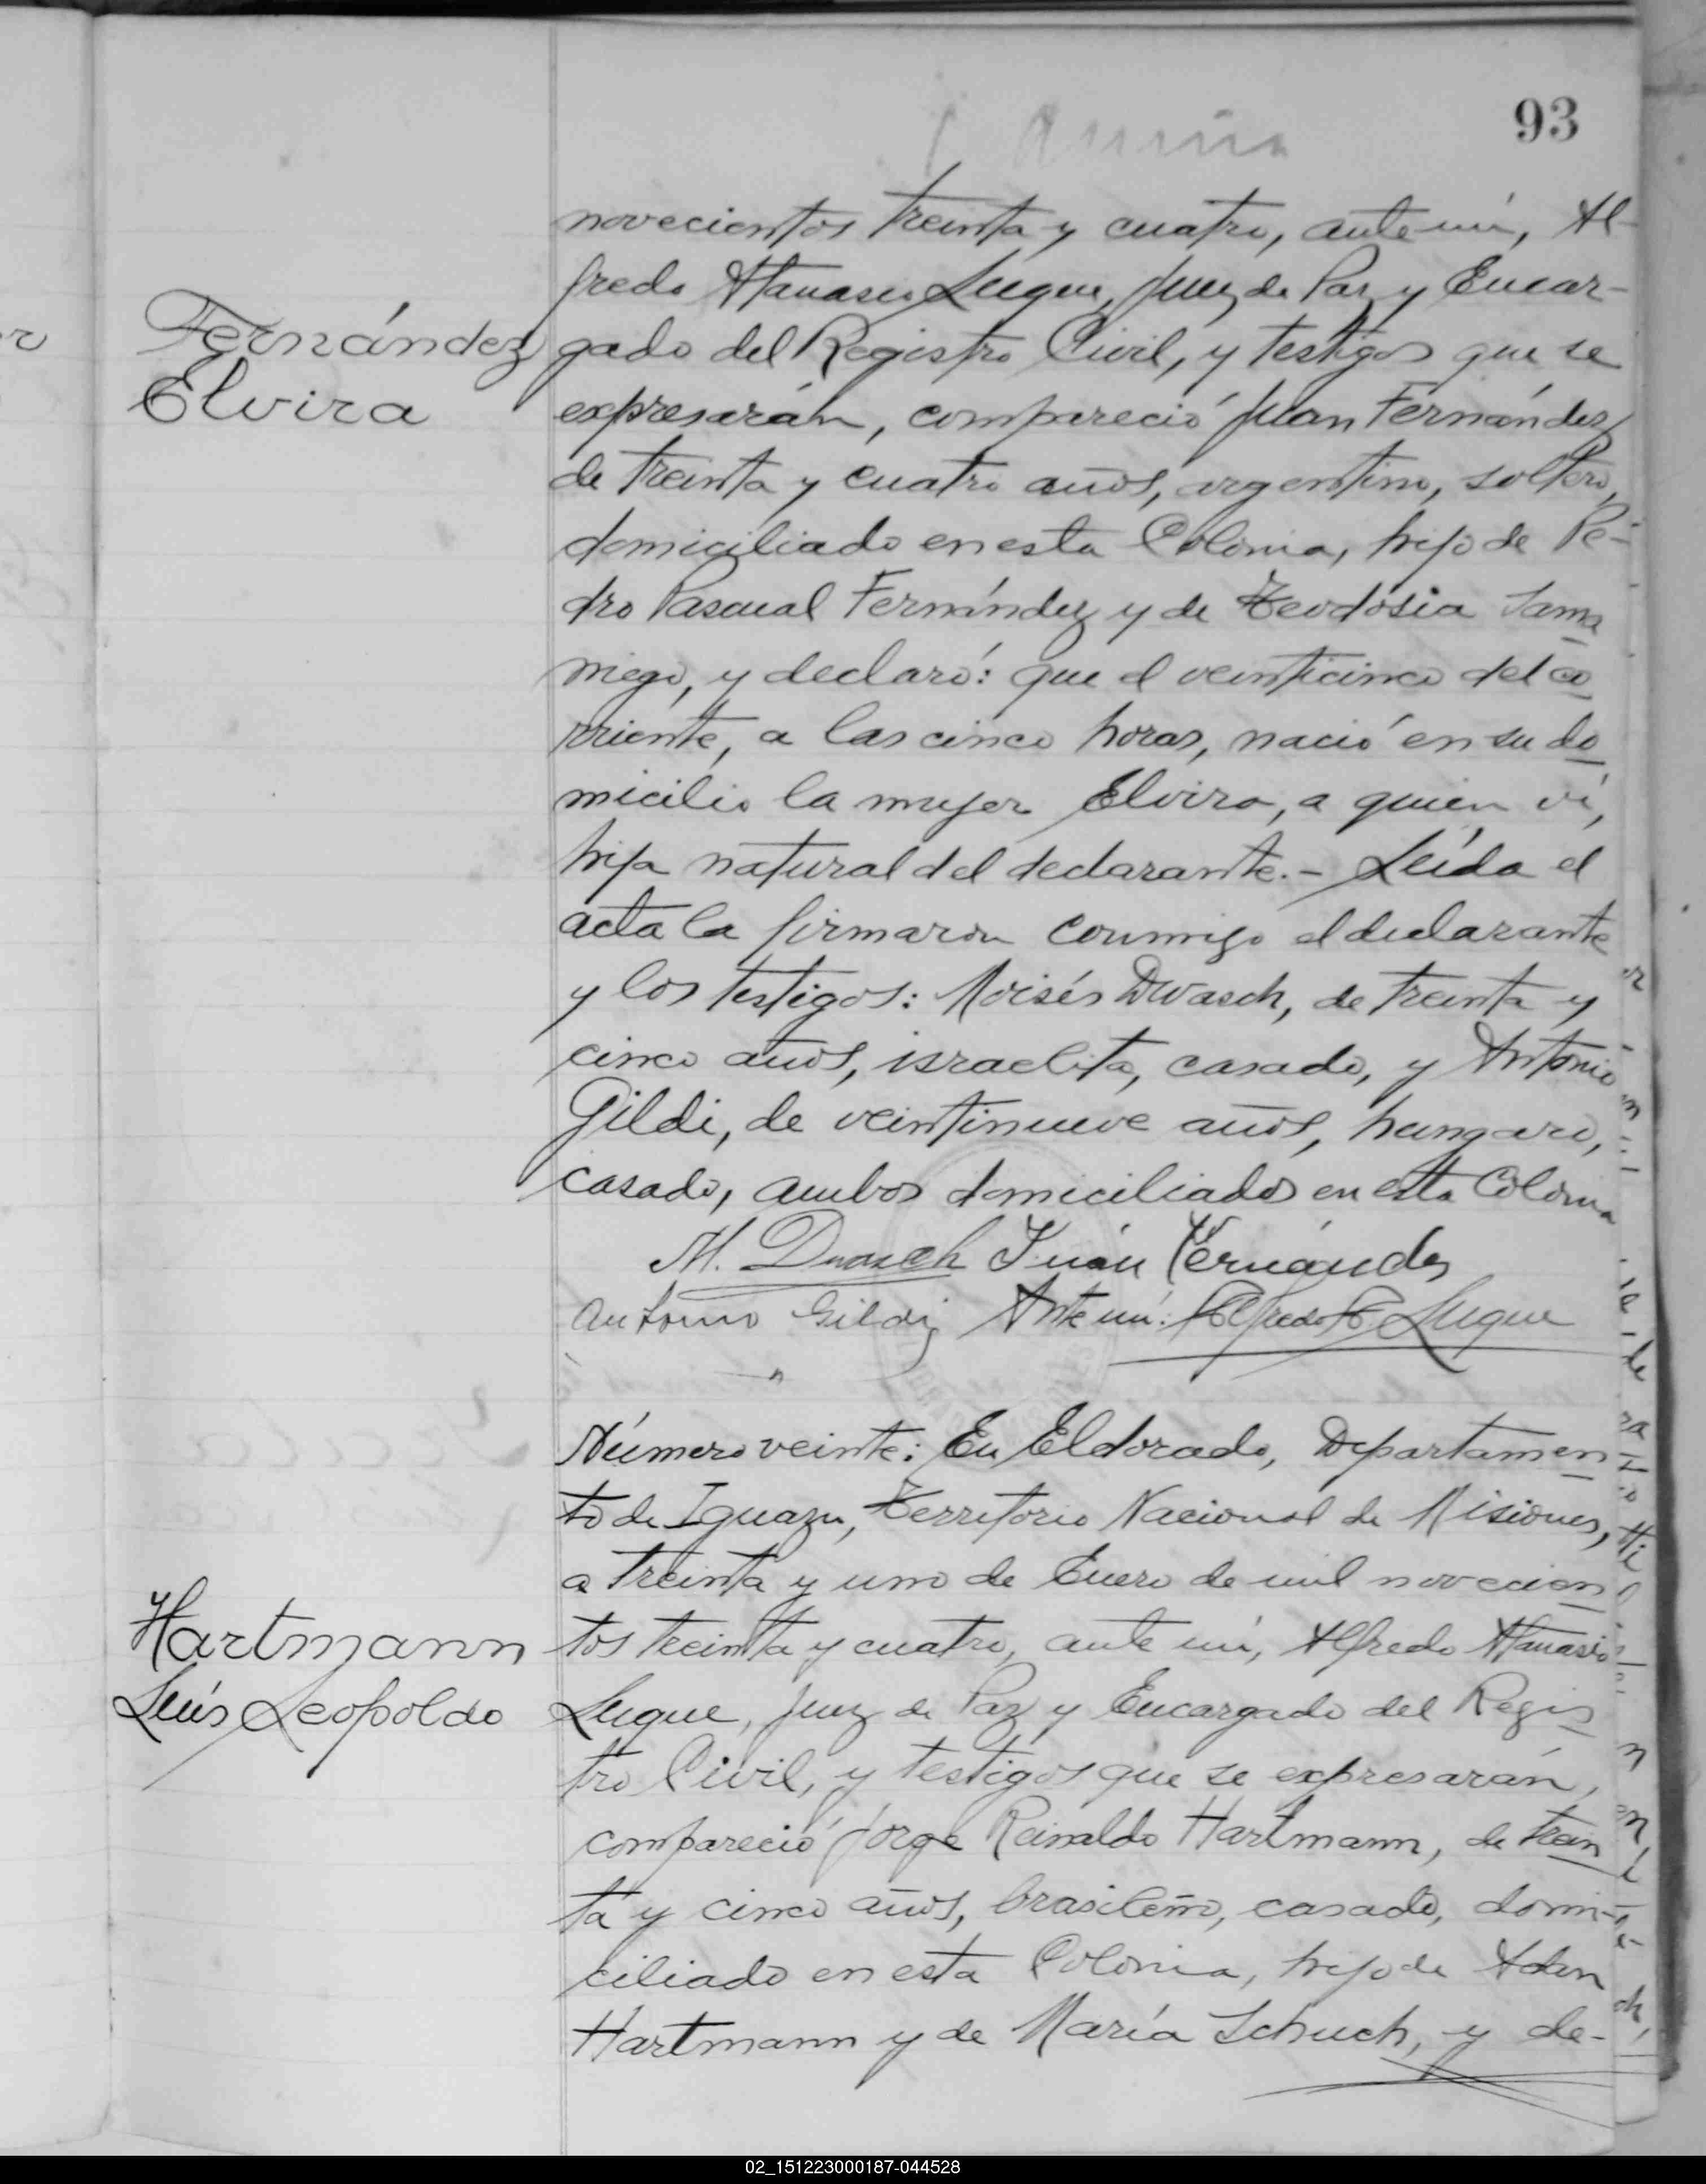 93
novecientos treinta y cuatro, ante mí, Al-
fredo Atanasio Luque, Juez de Paz y Encar-
Fernández
Elvira
gado del Registro Civil, y testigos que se
expresarán, compareció Juan Fernández
de treinta y cuatro años, argentino, soltero,
domiciliado en esta Colonia, hijo de Pe-
dro Pascual Fernández y de Teodosia Sama
niego, y declaró: que el veinticinco del co
rriente, a las cinco horas, nació en su do
micilio la mujer Elvira, a quien ví,
hija natural del declarante.- Leída el
acta la firmaron conmigo el declarante
y los testigos: Moisés Dwasch, de treinta y
cinco años, israelita, casado, y Antonio
Gildi, de veintinueve años, hungaro,
casado, ambos domiciliados en esta Colonia
M. Dwasch Juán Fernández
Antonio Gildi Ante mí: Alfredo A. Luque
Número veinte: En Eldorado, Departamen
to de Iguazu, Territorio Nacional de Misiones,
a treinta y uno de Enero de mil novecien
Hartmann
Luís Leopoldo
tos treinta y cuatro, ante mí, Alfredo Atanasio
Luque, Juez de Paz y Encargado del Regis
tro Civil, y testigos que se expresarán,
compareció Jorge Reinaldo Hartmann, de trein
ta y cinco años, brasileño, casado, domi-
ciliado en esta Colonia, hijo de Adan
Hartmann y de María Schuch, y de-
02_151223000187-044528